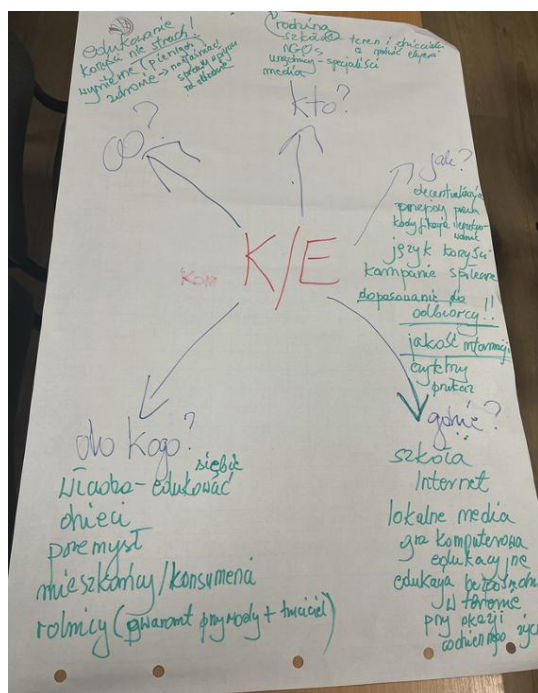 edukowanie
korzyści nie strach!
wymierne (pieniądze)
zdrowie →
co?
rodzina
szkoła → teren i chociaż
NGOs
urzędnicy - specjaliści
media
kto?
jak?
decentralizacja
przepisy prawa
kodyfikacja
język korzyści
kampanie społeczne
dopasowanie do
odbiorcy!!
jakość informacji
czytelny
przekaz
Kom K/E
do kogo?
siebie
Władza - edukować
dzieci
przemysł
mieszkańcy/konsumenci
rolnicy (gwarant przyrody + truciciel)
gdzie?
szkoła
Internet
lokalne media
gra komputerowa
edukacyjne
edukacja bezpośrednia
w terenie
przy okazji
codziennego życia